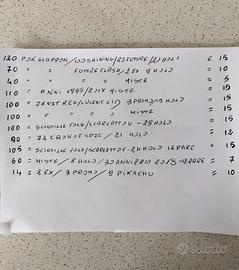 120 POK GIAPPON/100 SHINING/20 FUTURE/21 HOLO € 15
70 " " FUTURE FLASH/2 EX 9 HOLO = 10
40 " " " MISTE = 5
110 " ANNI 1995/2017 MISTE = 15
100 = 3 PROMO/5 HOLO = 15
100 = " " " MISTE = 15
100 = SCINTILLE FOLG/SCARLATTO V - 28 HOLO = 15
90 = 72 CRONOFORZE/21 HOLO = 12
105 = SCINTILLE FOLG/SCARLATTO V - 24 HOLO 12 RARE = 15
60 = MISTE/8 HOLO/30 ANNI 2010 2018 - 12 RARE = 7
14 = 2 EX/3 PROMO/9 PIKACHU = 10
subito